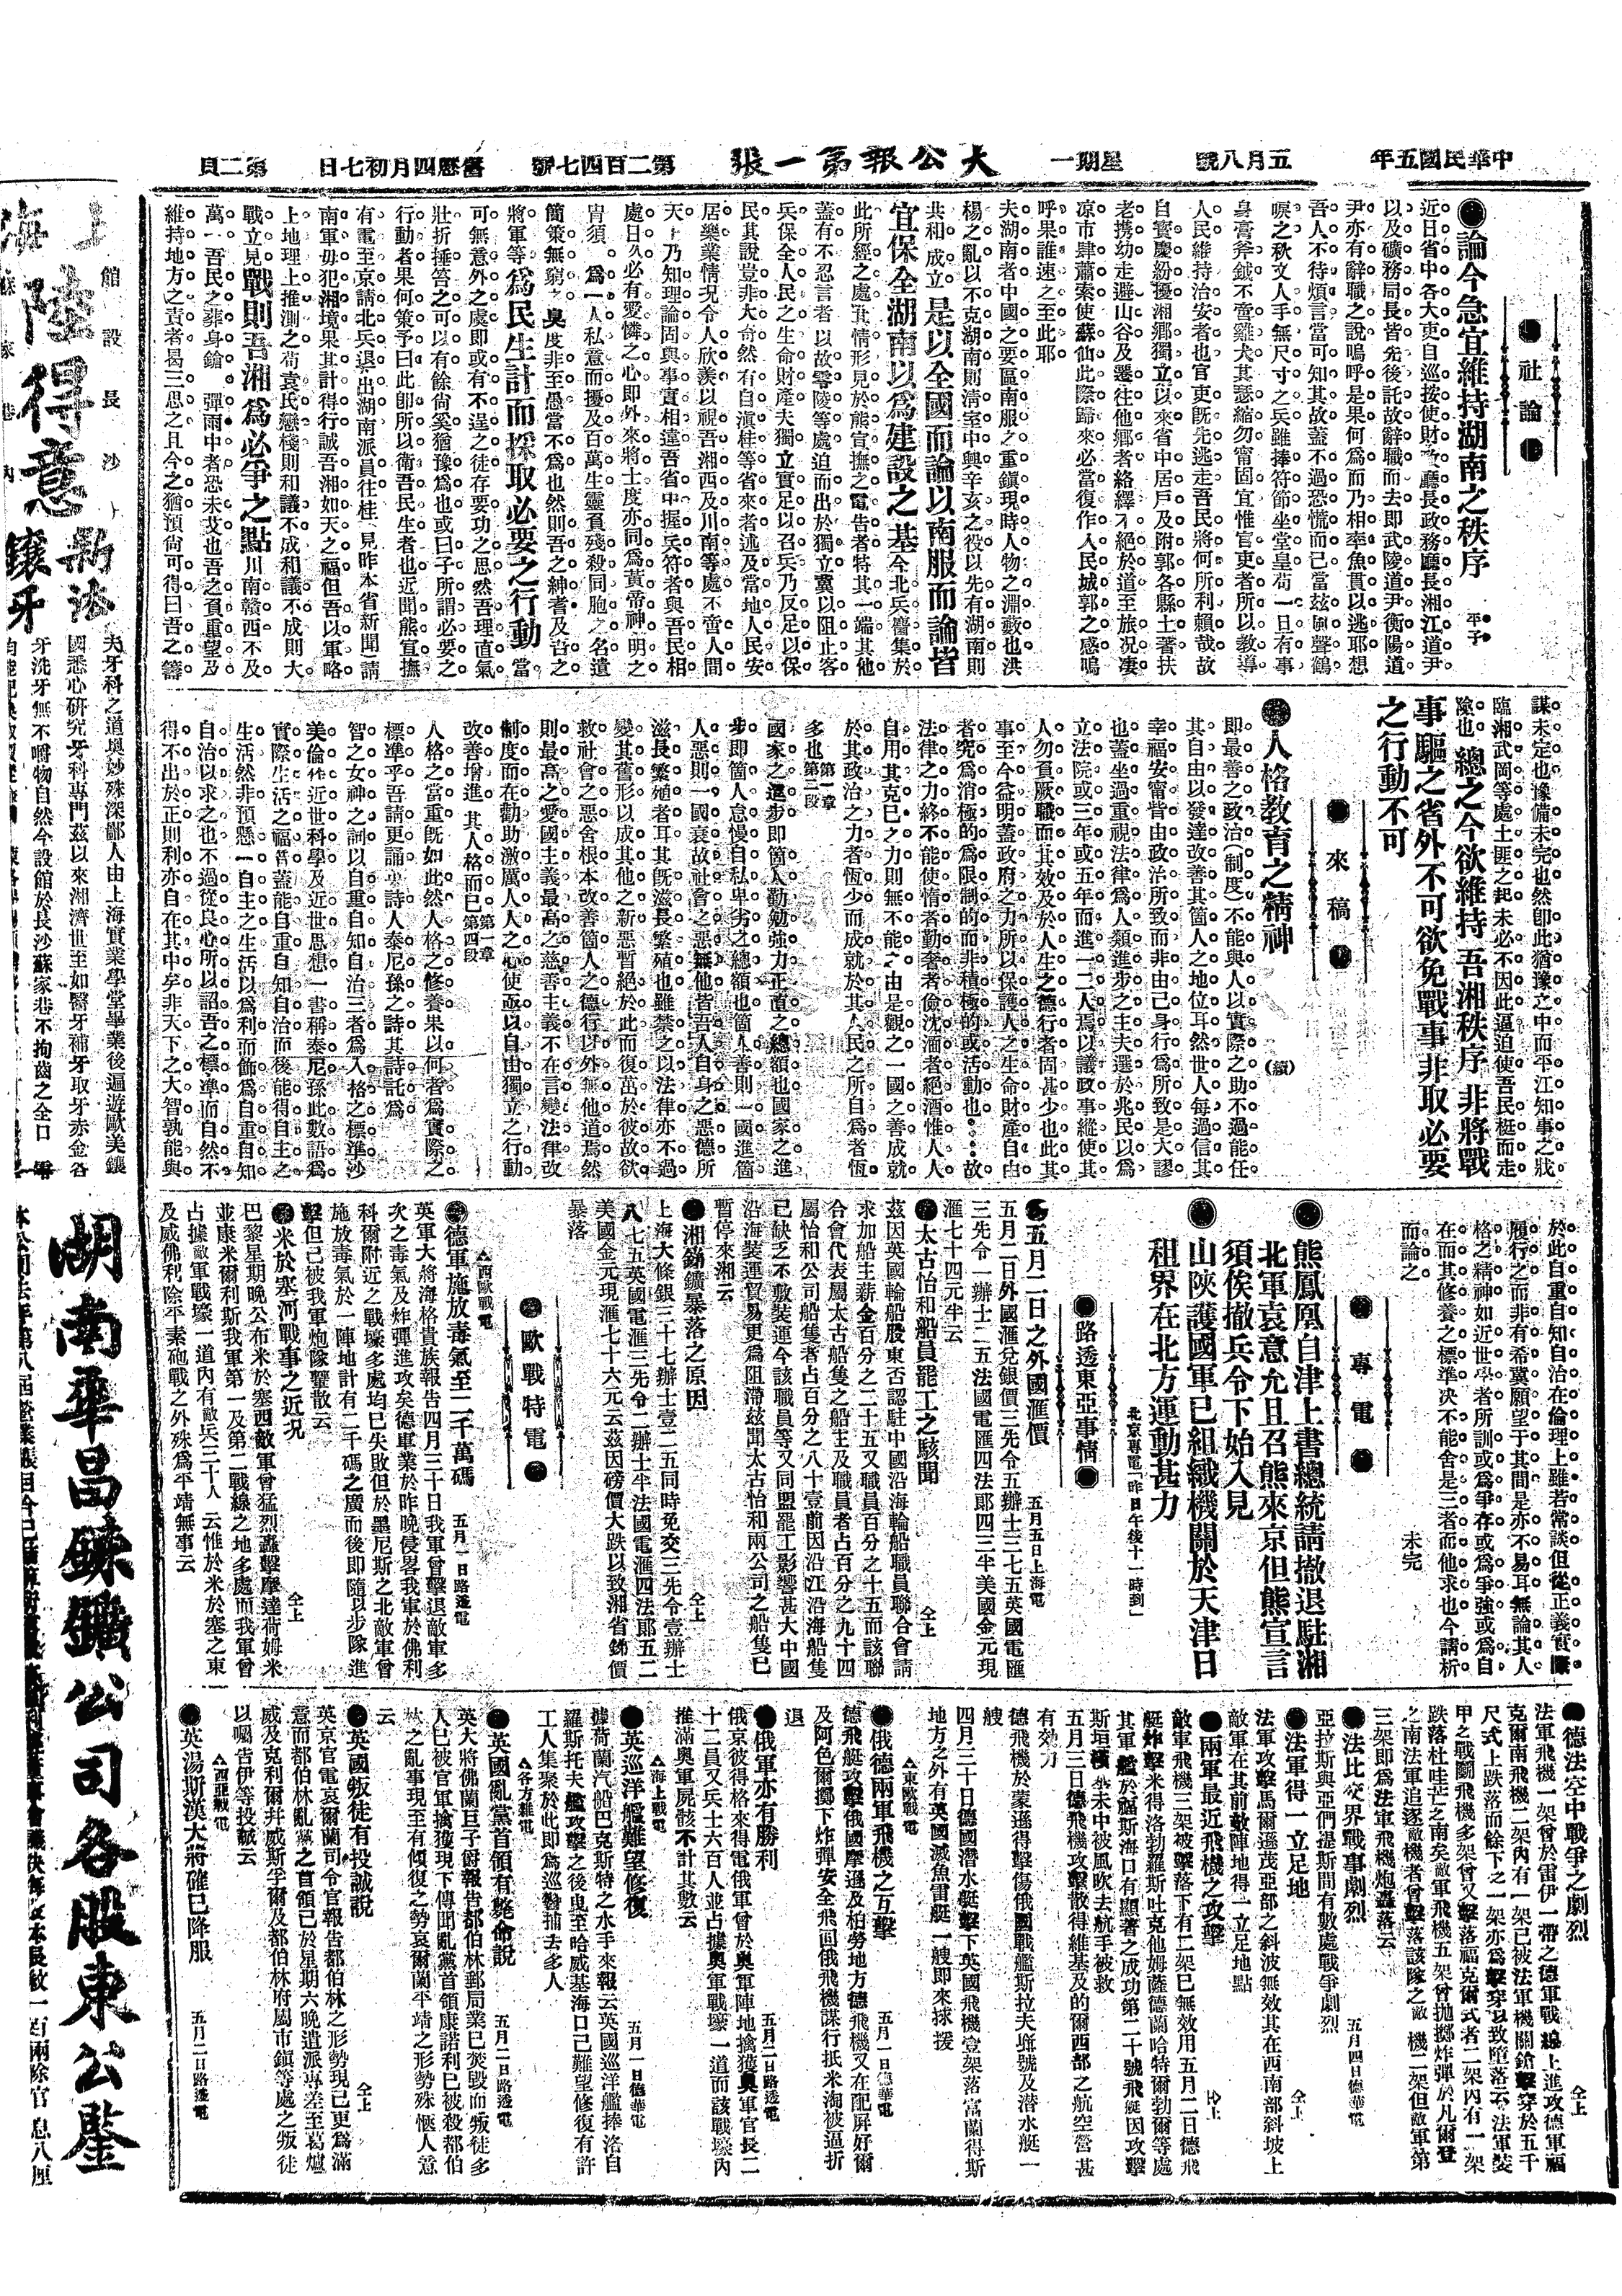 中華民國五年
五月八號
星期一
大公報第一張
第二百四七號
舊歷四月初七日
第二頁
社論
論今急宜維持湖南之秩序
平子
近日省中各大吏自巡按使財政廳長政務廳長湘江道尹
以及礦務局長皆先後託故辭職而去即武陵道尹衡陽道
尹亦有辭職之說嗚呼是果何為而乃相率魚貫以逃耶想
吾人不待煩言當可知其故蓋不過恐慌而已當茲風聲鶴
唳之秋文人手無尺寸之兵雖捧符節坐堂皇苟一日有事
身膏斧鉞不啻雞犬其瑟縮勿甯固宜惟官吏者所以教導
人民維持治安者也官吏既先逃走吾民將何所利賴哉故
自寶慶紛擾湘鄉獨立以來省中居戶及附郭各縣土著扶
老携幼走避山谷及遷往他鄉者絡繹不絕於道至旅況凄
凉市肆蕭索使蘇仙此際歸來必當復作人民城郭之感嗚
呼果誰速之至此耶
夫湖南者中國之要區南服之重鎮現時人物之淵藪也洪
楊之亂以不克湖南則清室中興辛亥之役以先有湖南則
共和成立是以全國而論以南服而論皆
宜保全湖南以為建設之基今北兵麕集於
此所經之處其情形見於熊宣撫之電告者特其一端其他
蓋有不忍言者以故零陵等處迫而出於獨立冀以阻止客
兵保全人民之生命財產夫獨立實足以召兵乃反足以保
民其說豈非大奇然有自滇桂等省來者述及當地人民安
居樂業情况令人欣羨以視吾湘西及川南等處不啻人間
天上乃知理論固與事實相違吾省中握兵符者與吾民相
處日久必有愛憐之心即外來將士度亦同為黃帝神明之
冑須為一人私意而擾及百萬生靈負殘殺同胞之名遺
簡策無窮之臭度非至愚當不為也然則吾之紳耆及吾之
將軍等為民生計而採取必要之行動當
可無意外之虞即或有不逞之徒存要功之思然吾理直氣
壯折捶笞之可以有餘尙奚猶豫為也或曰子所謂必要之
行動者果何策予曰此即所以衛吾民生者也近聞熊宣撫
有電至京請北兵退出湖南派員往桂見昨本省新聞請
南軍毋犯湘境果其計得行誠吾湘如天之福但吾以軍略
上地理上推測之苟袁民戀棧則和議不成和議不成則大
戰立見戰則吾湘為必爭之點川南贛西不及
萬一吾民之葬身鎗彈雨中者恐未艾也吾之負重望及
維持地方之責者曷三思之且今之猶預尙可得曰吾之籌
謀未定也豫備未完也然即此猶豫之中而平江知事之戕
臨湘武岡等處土匪之起未必不因此逼迫使吾民梃而走
險也總之今欲維持吾湘秩序非將戰
事驅之省外不可欲免戰事非取必要
之行動不可
來稿
人格教育之精神
（續）
即最善之政治（制度）不能與人以實際之助不過能任
其自由以發達改善其箇人之地位耳然世人每過信其
幸福安甯皆由政治所致而非由己身行為所致是大謬
也蓋坐過重視法律為人類進步之主夫選於兆民以為
立法院或三年或五年而進一二人焉以議政事縱使其
人勿負厥職而其效及於人生之德行者固甚少也此其
事至今益明蓋政府之力所以保護人之生命財產自由
者究為消極的為限制的而非積極的或活動也故
法律之力終不能使惰者勤奢者儉沈湎者絕酒惟人人
自用其克已之力則無不能之由是觀之一國之善成就
於其政治之力者恆少而成就於其人民之所自為者恆
多也第一章第二段
國家之進步即箇人勤勉強力正直之總額也國家之進
步即箇人怠慢自私卑劣之總額也箇人善則一國進箇
人惡則一國衰故社會之惡無他皆吾人自身之惡德所
滋長繁殖者耳其既滋長繁殖也雖禁之以法律亦不過
變其舊形以成其他之新惡暫絕於此而復萌於彼故欲
救社會之惡舍根本改善箇人之德行以外無他道焉然
則最高之愛國主義最高之慈善主義不在言變法律改
制度而在勸助激厲人人之心使亟以自由獨立之行動
改善增進其人格而已第一章第四段
人格之當重既如此然人格之修養果以何者為實際之
標準乎吾請更誦詩人泰尼孫之詩其詩託為
智之女神之詞以自重自知自治三者為人格之標準沙
美倫作近世科學及近世思想一書稱泰尼孫此數語為
實際生活之福音蓋能自重自知自治而後能得自主之
生活然非預懸一自主之生活以為利而飾為自重自知
自治以求之也不過從良心所以詔吾之標準而自然不
得不出於正則利亦自在其中矣非天下之大智孰能與
於此自重自知自治在倫理上雖若常談但從正義實際
履行之而非有希冀願望于其間是亦不易耳無論其人
格之精神如近世學者所訓或為爭存或為爭強或為自
在而其修養之標準决不能舍是三者而他求也今請析
而論之
未完
專電
熊鳳凰自津上書總統請撤退駐湘
北軍袁意允且召熊來京但熊宣言
須俟撤兵令下始入見
山陝護國軍已組織機關於天津日
租界在北方運動甚力
北京專電「昨日午後十一時到」
路透東亞事情
五月二日之外國滙價
五月五日上海電
五月二日外國滙兌銀價三先令五辦士三七五英國電匯
三先令一辦士一二五法國電匯四法郎四三半美國金元現
滙七十四元半云
太古怡和船員罷工之駭聞
仝上
茲因英國輪船股東否認駐中國沿海輪船職員聯合會請
求加船主薪金百分之二十五又職員百分之十五而該聯
合會代表屬太古船隻之船主及職員者占百分之九十四
屬怡和公司船隻者占百分之八十壹前因沿江沿海船隻
已缺乏不敷裝運今該職員等又同盟罷工影響甚大中國
沿海裝運貿易更為阻滯茲聞太古怡和兩公司之船隻已
暫停來湘云
湘銻鑛暴落之原因
仝上
上海大條銀三十七辦士壹二五同時免交三先令壹辦士
八七五英國電滙三先令二辦士半法國電滙四法郎五二
美國金元現滙七十六元云茲因磅價大跌以致湘省銻價
暴落
歐戰特電
西歐戰電
德軍施放毒氣至二千萬碼
五月一日路透電
英軍大將海格貴族報告四月三十日我軍曾擊退敵軍多
次之毒氣及炸彈進攻矣德軍業於昨晚侵畧我軍於佛利
科爾附近之戰壕多處均已失敗但於墨尼斯之北敵軍曾
施放毒氣於一陣地計有二千碼之廣而後即隨以步隊進
擊但已被我軍炮隊擊散云
米於塞河戰事之近况
仝上
巴黎星期晚公布米於塞西敵軍曾猛烈轟擊摩達荷姆米
並康米爾利斯我軍第一及第二戰線之地多處而我軍曾
占據敵軍戰壕一道內有敵兵三十人云惟於米於塞之東
及威佛利除平素砲戰之外殊為平靖無事云
德法空中戰爭之劇烈
仝上
法軍飛機一架曾於雷伊一帶之德軍戰線上進攻德軍福
克爾南飛機二架內有一架已被法軍機關鎗擊穿於五千
尺式上跌落而餘下之一架亦為擊穿以致墮落云法軍裝
甲之戰鬭飛機多架曾又擊落福克爾式者二架內有一架
跌落杜哇芒之南矣敵軍飛機五架曾抛擲炸彈於凡爾登
之南法軍追逐敵機者曾擊落該隊之敵機二架但敵軍第
三架即為法軍飛機炮轟落云
法比交界戰事劇烈
五月四日德華電
亞拉斯與亞們提斯間有數處戰爭劇烈
法軍得一立足地
仝上
法軍攻擊馬爾遜茂亞部之斜波無效其在西南部斜坡上
敵軍在其前敵陣地得一立足地點
兩軍最近飛機之攻擊
仝上
敵軍飛機三架被擊落下有二架已無效用五月二日德飛
艇炸擊米得洛勃羅斯吐克他姆薩德蘭哈特爾勃爾等處
其軍艦於福斯海口有顯著之成功第二十號飛艇因攻擊
斯坦橫坐未中被風吹去航手被救
五月三日德飛機攻擊散得維基及的爾西部之航空營甚
有効力
德飛機於蒙遜得擊傷俄國戰艦斯拉夫㙲號及潛水艇一
艘
四月三十日德國潛水艇擊下英國飛機壹架落富蘭得斯
地方之外有英國滅魚雷艇一艘即來捄援
東歐戰電
俄德兩軍飛機之互擊
五月一日德華電
德飛艇攻擊俄國摩遜及柏勞地方德飛機又在配屏好爾
及阿色爾擲下炸彈安全飛回俄飛機謀行抵米淘被逼折
退
俄軍亦有勝利
五月二日路透電
俄京彼得格來得電俄軍曾於奧軍陣地擒獲奧軍官長二
十二員又兵士六百人並占據奧軍戰壕一道而該戰壕內
推滿奧軍屍骸不計其數云
海上戰電
英巡洋艦難望修復
五月一日德華電
據荷蘭汽船巴克斯特之水手來報云英國巡洋艦捧洛自
羅斯托夫艦攻擊之後曳至哈威基海口已難望修復有許
工人集聚於此即為巡警捕去多人
各方雜電
英國亂黨首領有斃命說
五月二日路透電
英大將佛蘭旦子爵報告都伯林郵局業已焚毀而叛徒多
人已被官軍擒獲現下傳聞亂黨首領康諾利已被殺都伯
林之亂事現至有傾復之勢哀爾蘭平靖之形勢殊愜人意
云
英國叛徒有投誠說
仝上
英京官電哀爾蘭司令官報告都伯林之形勢現已更為滿
意而都伯林亂黨之首領已於星期六晚遣派專差至葛爐
威及克利爾幷威斯孚爾及都伯林府屬市鎮等處之叛徒
以囑告伊等投誠云
西亞戰電
英湯斯漢大將確已降服
五月二日路透電
上海
陸得意
新法
鑲牙
館設長沙
蘇家巷內
夫牙科之道奥妙殊深鄙人由上海實業學堂畢業後遍遊歐美鑲
國悉心研究牙科專門茲以來湘濟世至如醫牙補牙取牙赤金各
牙洗牙無不嚼物自然今設館於長沙蘇家巷不拘齒之全口零
湖南華昌鍊鑛公司各股東公鑒